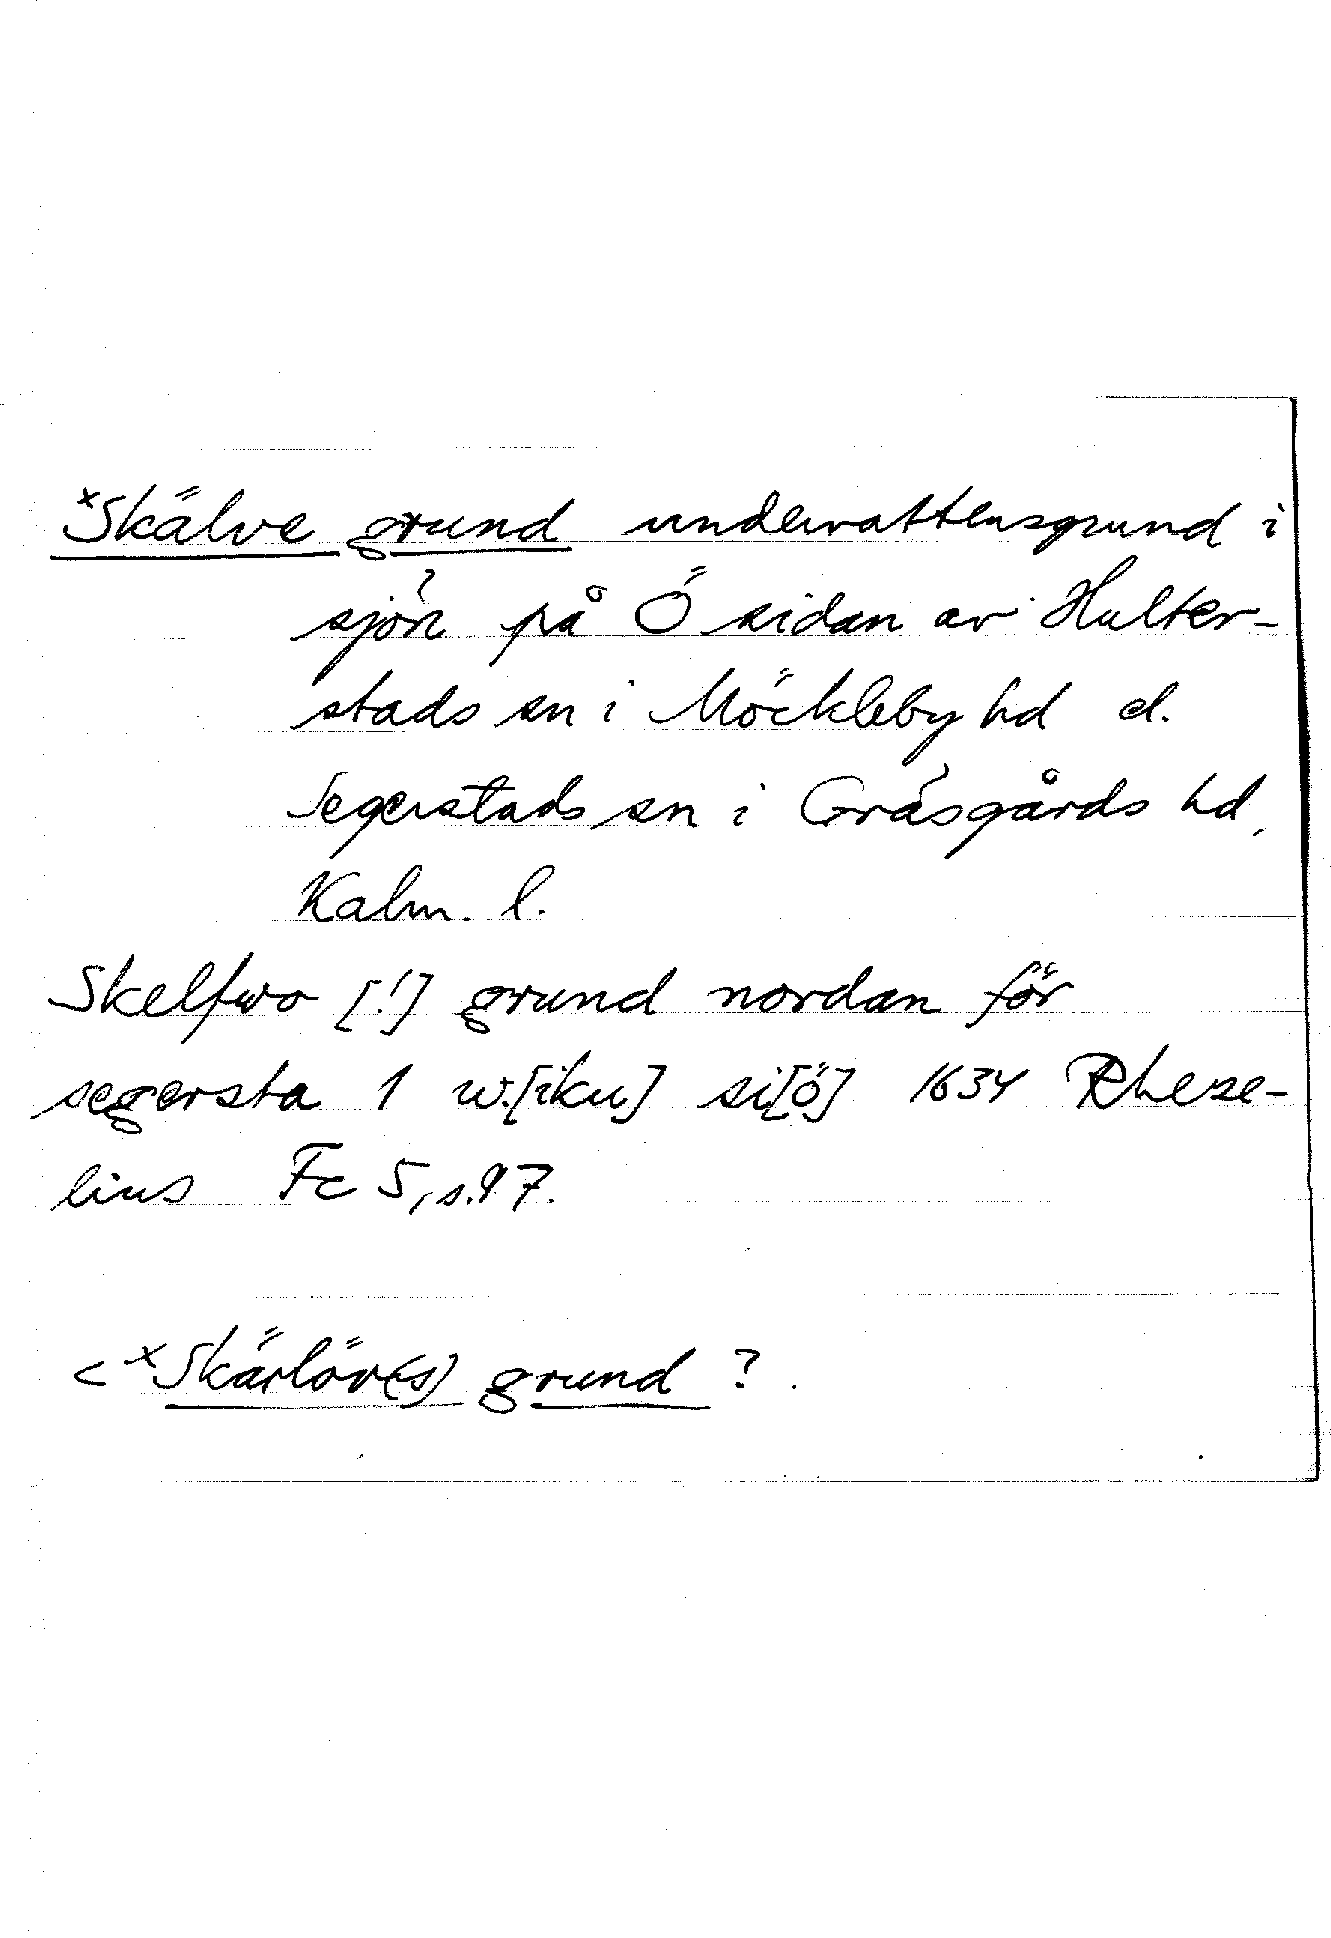 *Skälve grund undervattensgrund i
sjön på Ö sidan av Hulter-
stads sn i Möckleby hd el.
Segerstads sn i Gräsgårds hd,
Kalm. l.
Skelfwo [!] grund nordan för
segersta 1 w.[iku] si[ö] 1634 Rheze-
lius Fc 5, s. 97.
< *Skärlöv(s) grund ?.